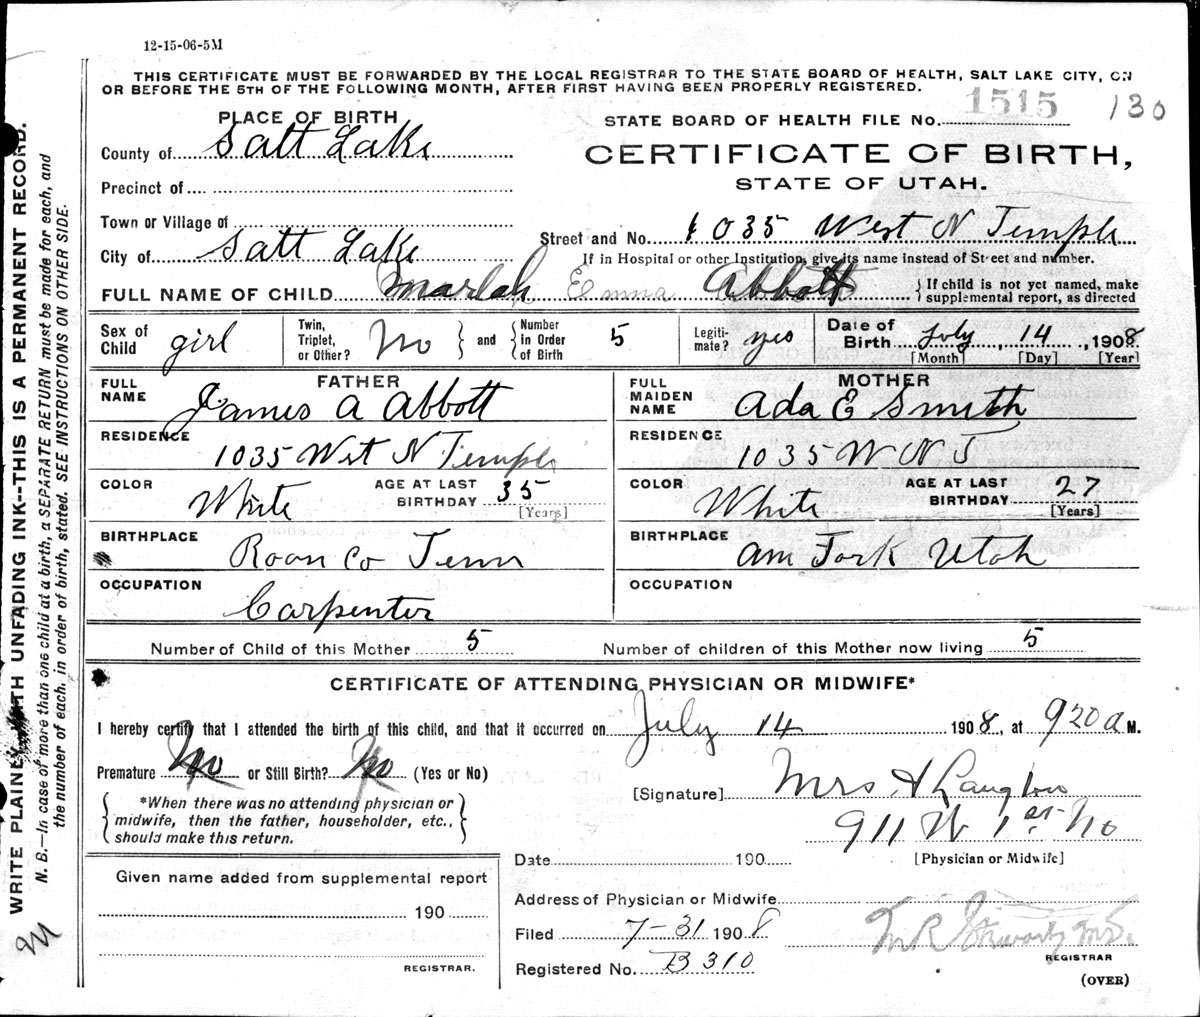 12-15-06-5M
THIS CERTIFICATE MUST BE FORWARDED BY THE LOCAL REGISTRAR TO THE STATE BOARD OF HEALTH, SALT LAKE CITY, ON
OR BEFORE THE 5TH OF THE FOLLOWING MONTH, AFTER FIRST HAVING BEEN PROPERLY REGISTERED.
PLACE OF BIRTH
STATE BOARD OF HEALTH FILE NO. 1515 130
County of Salt Lake
CERTIFICATE OF BIRTH,
STATE OF UTAH.
Precinct of
Town or Village of
Street and No. 1035 West N Temple
City of Salt Lake
If in Hospital or other Institution, give its name instead of Street and number.
FULL NAME OF CHILD Marlah Emma Abbott { If child is not yet named, make
supplemental report, as directed
Sex of Child girl
Twin, Triplet, or Other? No } and { Number in Order of Birth 5
Legitimate? yes
Date of Birth July, 14, 1908
[Month] [Day] [Year]
FATHER
FULL NAME James A Abbott
RESIDENCE 1035 West N Temple
COLOR White AGE AT LAST BIRTHDAY 35 [Years]
BIRTHPLACE Roan Co Tenn
OCCUPATION Carpenter
MOTHER
FULL MAIDEN NAME Ada E Smith
RESIDENCE 1035 W N T
COLOR White AGE AT LAST BIRTHDAY 27 [Years]
BIRTHPLACE Am Fork Utah
OCCUPATION
Number of Child of this Mother 5 Number of children of this Mother now living 5
CERTIFICATE OF ATTENDING PHYSICIAN OR MIDWIFE*
I hereby certify that I attended the birth of this child, and that it occurred on July 14 1908, at 920 a M.
Premature No or Still Birth? No (Yes or No)
{ *When there was no attending physician or
midwife, then the father, householder, etc.,
should make this return. }
[Signature] Mrs A Langton
911 W 1st No
[Physician or Midwife]
Date 190
Address of Physician or Midwife
Given name added from supplemental report
190
REGISTRAR.
Filed 7-31 1908
Registered No. B310
REGISTRAR
(OVER)
WRITE PLAINLY WITH UNFADING INK--THIS IS A PERMANENT RECORD.
N. B.—In case of more than one child at a birth, a SEPARATE RETURN must be made for each, and
the number of each, in order of birth, stated. SEE INSTRUCTIONS ON OTHER SIDE.